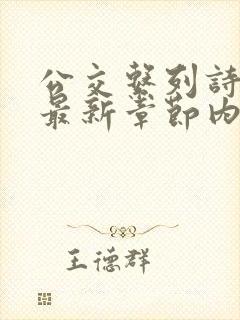 公交系列諱
最新章節內
王德群